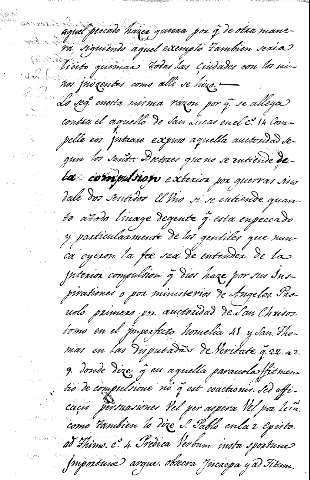 aquel pecado hazer guerra por q̃ de otra mane
ra siguiendo aquel exemplo tambien seria
licito quemar todas las ciudades con los ni
nos inozentes como alli se hizo.—
Lo seg.º en esta misma razon por q̃ se allega
contra el aquello de San Lucas en el c.º 14 Com
pelle eos intrare expuso aquella auctoridad se
gun los Sanctos Doctores que no se entiende de
la compulsion exterior por guerras sino
dale dos sentidos el uno si se entiende quan
to a todo linage de gente q̃ esta en peccado
y particularmente de los gentiles que nun
ca oyeron la fee sea de entender de la
interior compulsion q̃ dios haze por sus ins
pirationes o por ministerios de Angeles
primero por auctoridad de san Chrisos
tomo en el imperfecto homelia 41 y san Tho
mas en las disputadas de Veritate q. 22 a.
9. donde dize q̃ en aquella parabola
de compulsione no q̃ est coactionis sed effi
cacis persuasiones vel por aspera vel por
como tambien lo dize S. Pablo en la 2 epist.
ad Thimo. c.º 4 Predica Verbum insta oportune
importune argue obsecra increpa y ad Titum.